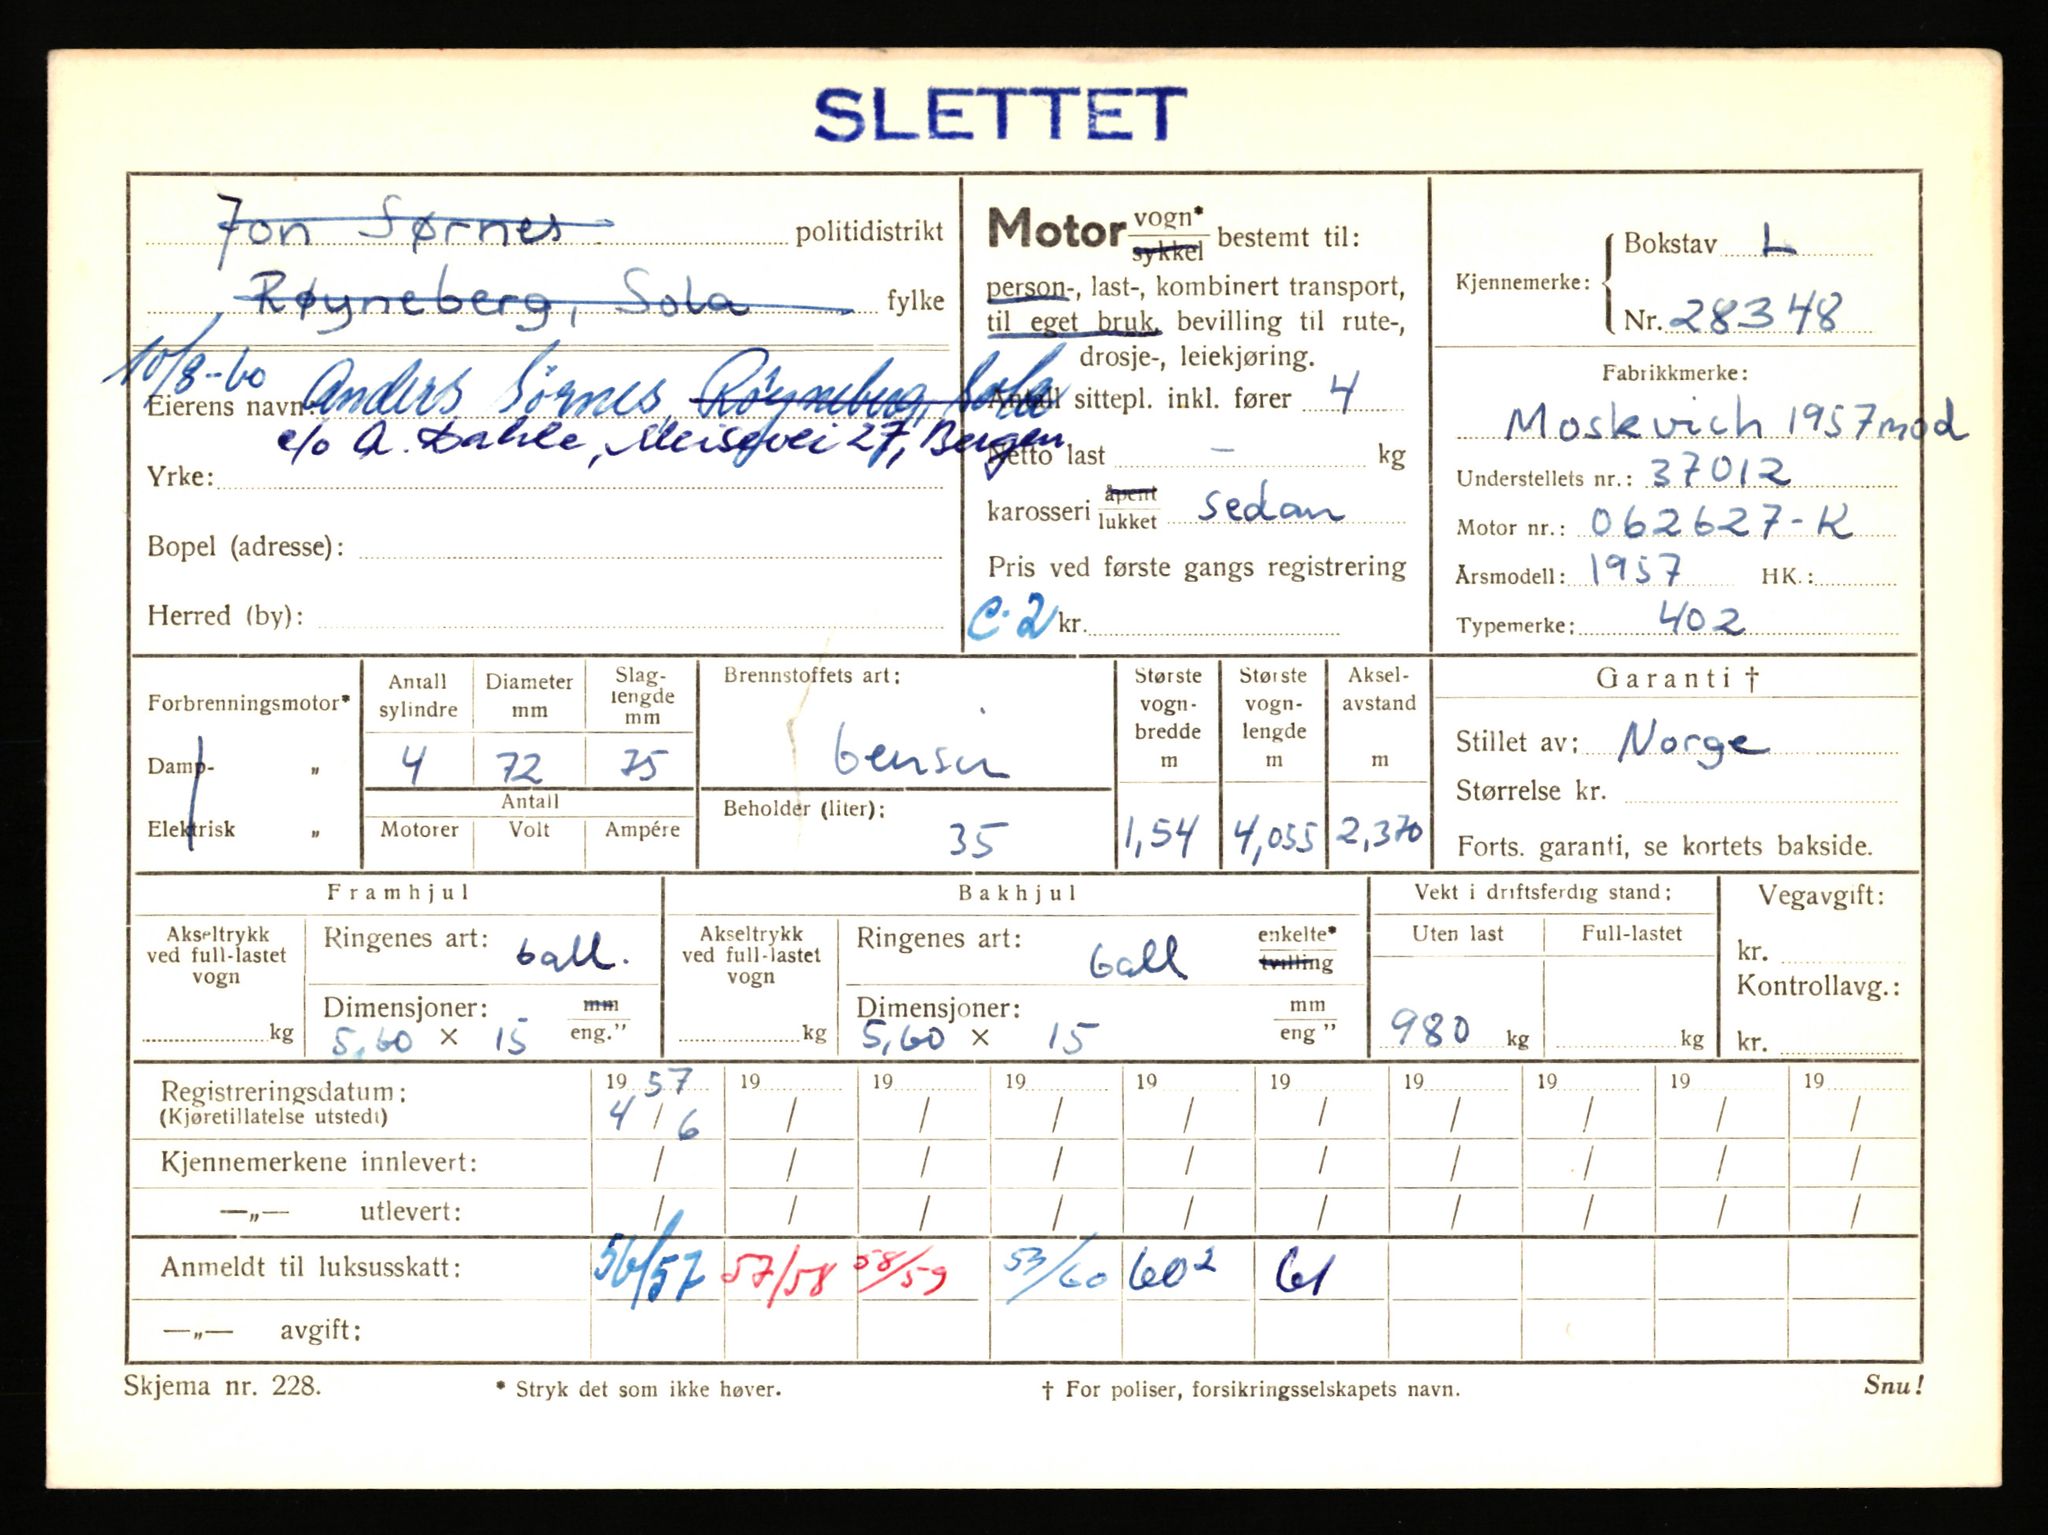 SLETTET
Jon Sørnes politidistrikt
Røyneberg, Sola fylke
10/8-60 Anders Sörnes, Röyneberg, Sola
Eierens navn:
c/o A. Dahle, Meisevei 27, Bergen
Yrke:
Bopel (adresse):
Herred (by):
Motor vogn* sykkel bestemt til:
person-, last-, kombinert transport,
til eget bruk, bevilling til rute-,
drosje-, leiekjøring.
Antall sittepl. inkl. fører 4
Netto last - kg
karosseri åpent lukket sedan
Pris ved første gangs registrering
C-2 kr.
Kjennemerke: Bokstav L
Nr. 28348
Fabrikkmerke:
Moskvich 1957 mod
Understellets nr.: 37012
Motor nr.: 062627-K
Årsmodell: 1957 HK.:
Typemerke: 402
Forbrenningsmotor*
Damp- „
Elektrisk „
Antall sylindre 4
Diameter mm 72
Slag-lengde mm 75
Antall
Motorer Volt Ampére
Brennstoffets art:
bensin
Beholder (liter):
35
Største vogn-bredde m 1,54
Største vogn-lengde m 4,055
Aksel-avstand m 2,370
Garanti †
Stillet av: Norge
Størrelse kr.
Forts. garanti, se kortets bakside.
Framhjul
Akseltrykk ved full-lastet vogn kg
Ringenes art: ball.
Dimensjoner: mm
5,60 × 15 eng."
Bakhjul
Akseltrykk ved full-lastet vogn kg
Ringenes art: ball enkelte* tvilling
Dimensjoner: mm
5,60 × 15 eng"
Vekt i driftsferdig stand:
Uten last Full-lastet
980 kg kg
Vegavgift:
kr.
Kontrollavg.:
kr.
Registreringsdatum: 19 57 19 19 19 19 19 19 19 19 19
(Kjøretillatelse utstedt) 4 / 6 / / / / / / / / /
Kjennemerkene innlevert: / / / / / / / / / /
—„— utlevert: / / / / / / / / / /
Anmeldt til luksusskatt: 56/57 57/58 58/59 53/60 60² 61
—„— avgift:
Skjema nr. 228. * Stryk det som ikke høver. † For poliser, forsikringsselskapets navn. Snu!